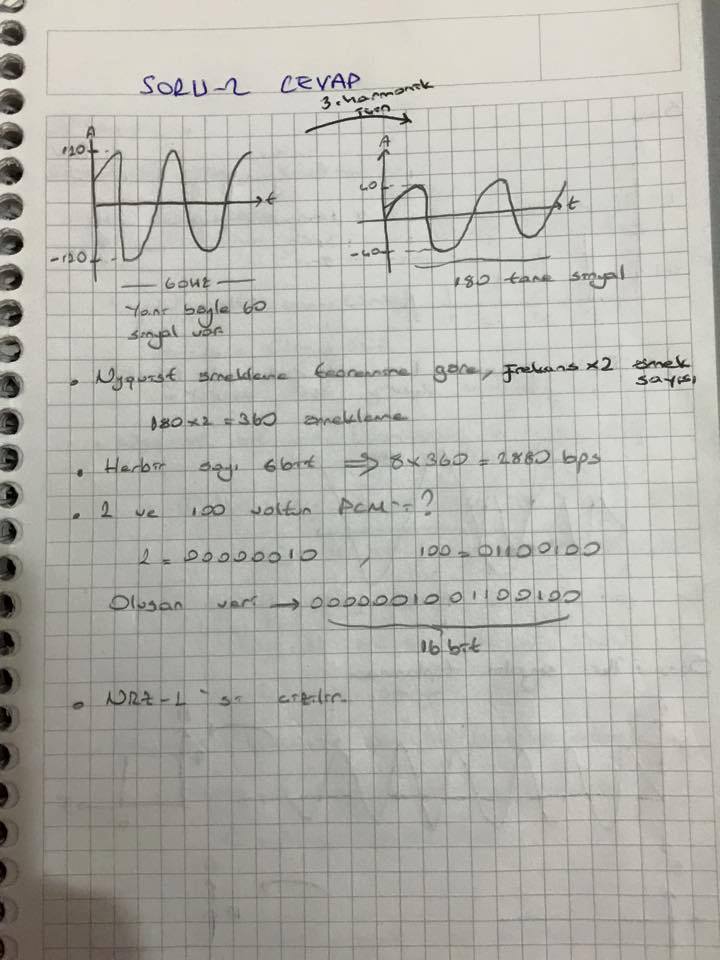 SORU-2 CEVAP
3. harmonik
için
A
120
-120
t
60Hz
Yani böyle 60
sinyal var
A
40
-40
t
180 tane sinyal
• Nyquist örnekleme teoremine göre, Frekans x2 örnek
sayısı
180 x 2 = 360 örnekleme
• Herbir sayı 8bit ⇒ 8 x 360 = 2880 bps
• 2 ve 100 voltun PCM = ?
2 = 00000010 , 100 = 01100100
Oluşan veri → 0000001001100100
16 bit
• NRZ-L 'si çizilir.